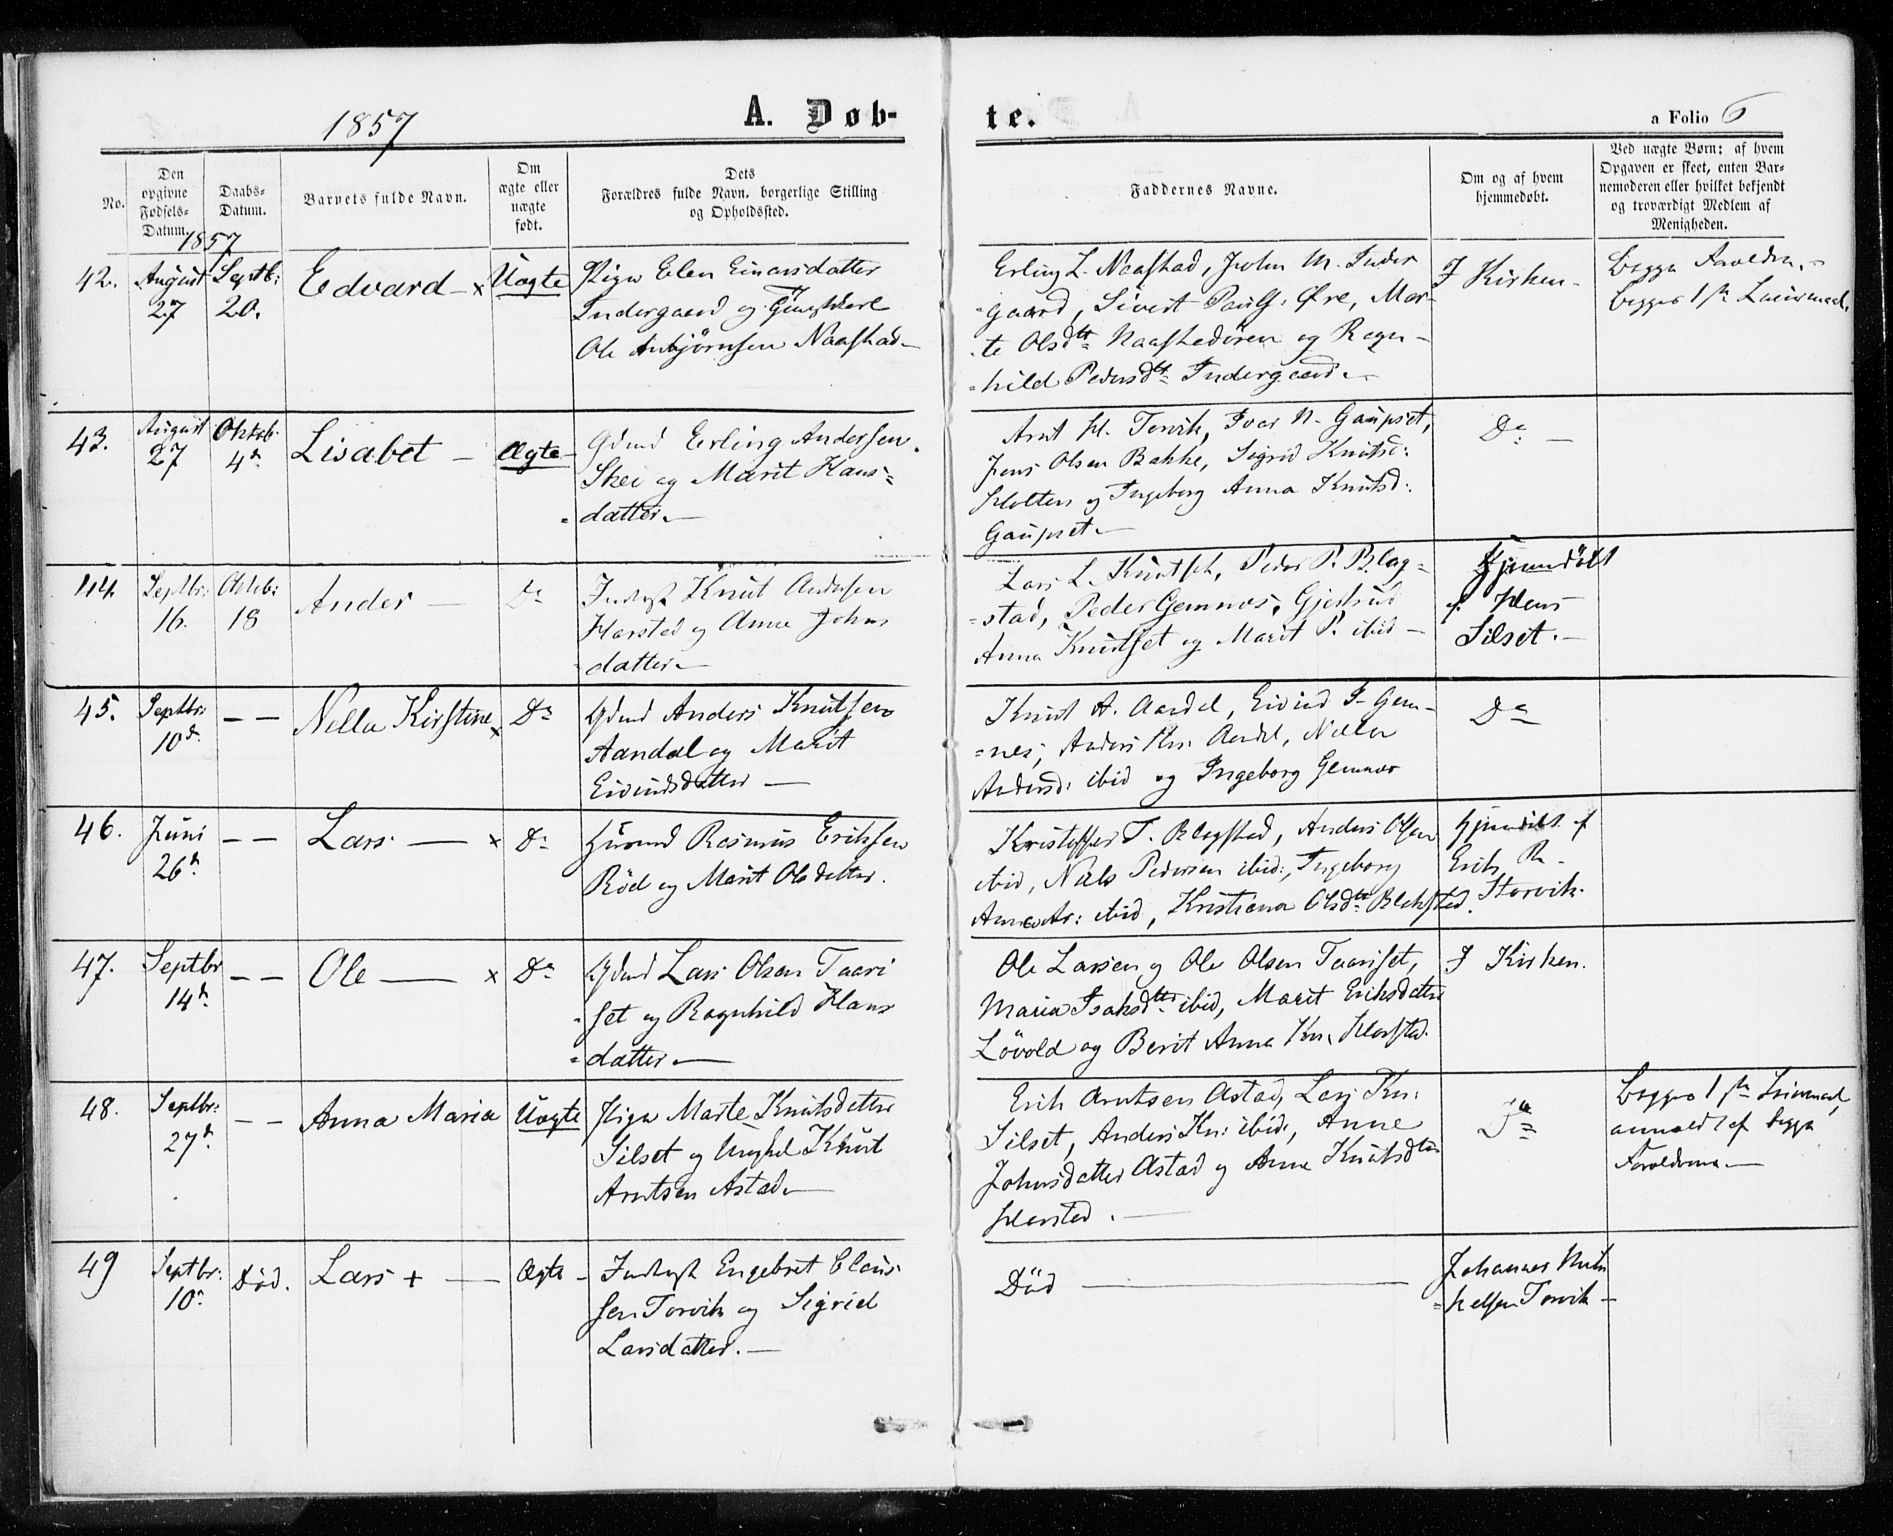 1857
A. Døb-
te.
a Folio 6
No.
Den
opgivne
Fødsels-
Datum.
Daabs-
Datum.
Barnets fulde Navn.
Om
ægte eller
uægte
født.
Dets
Forældres fulde Navn, borgerlige Stilling
og Opholdssted.
Faddernes Navne.
Om og af hvem
hjemmedøbt.
Ved uægte Børn: af hvem
Opgaven er skeet, enten Bar-
nemoderen eller hvilket bekjendt
og troværdigt Medlem af
Menigheden.
1857
42.
August
27
Septb:
20.
Edvard - x
Uægte
Pigen Elen Einarsdatter
Indergaard og Ungkarl
Ole Anbjörnsen Naastad -
Erling L. Naastad, John M. Inder
=gaard, Sivert Øre, Mar-
te Olsdtr Naastadören og Ragn-
=hild Pedersdtr Indergaard. -
I Kirken -
begge Foreldre. -
begges 1ste Leiermaal.
43.
August
27
Oktob:
4d
Lisabet -
Ægte -
Gdmd Erling Andersen
Skei og Marit Hans=
=datter. -
Arnt H. Torvik, Iver N. Gaupset,
Jens Olsen Bakke, Sigrid Knutsd:
Holten og Ingeborg Anna Knutsd:
Gaupset -
Do -
44.
Septbr:
16.
Oktob:
18
Ander -
Do
Indergst Knut Andersen
Harstad og Anne Johns
datter -
Lars L. Knutset, Peder P. Blag=
=stad, Peder Gemnes, Gjertrud
Anna Knutset og Marit P. ibid -
Hjemmedöbt
af Hans
Silset. -
45.
Septbr:
10d.
- -
Nella Kirstine x
Do
Gdmd Anders Knutsen
Aandal og Marit
Eivindsdatter -
Knut A. Aandal, Eivind F. Gem-
=nes, Anders Kn: Aandal, Nella
Andersd: ibid og Ingeborg Gemnes
Do
46.
Juni
26d
- -
Lars - x
Do
Huusmd Rasmus Eriksen
Röd og Marit Olsdatter.
Kristoffer T. Blagstad, Anders Olsen
ibid, Niels Pedersen ibid:, Ingeborg
Anna Ar: ibid, Kristiana Olsdtr Blakstad.
Hjemdöbt af
Erik R.
Storvik.
47.
Septbr
14d.
- -
Ole - x
Do
Gdmd Lars Olsen Taari
=set og Ragnhild Hans
=datter. -
Ole Larsen og Ole Olsen Taariset,
Maria Isaksdtr ibid, Marit Eriksdatter
Lövold og Berit Anna Kn. Harstad.
I Kirken.
48.
Septbr:
27d.
- -
Anna Maria
Uægte
Pigen Marte Knutsdatter
Silset og Ungkal Knut
Arntsen Astad -
Erik Arntsen Astad, Lars Kn:
Silset, Anders Kn: ibid:, Anne
Johnsdatter Astad og Anne Knutsdtr
Harstad. -
Do
begges 1ste Leiermaal,
anmeldt af begge
Foreldrene. -
49
Septbr:
10d
Död.
Lars + -
Ægte -
Indergst Engebret Claus-
sen Torvik og Sigrid
Larsdatter. -
Död -
Johannes Mik
=kelsen Torvik -